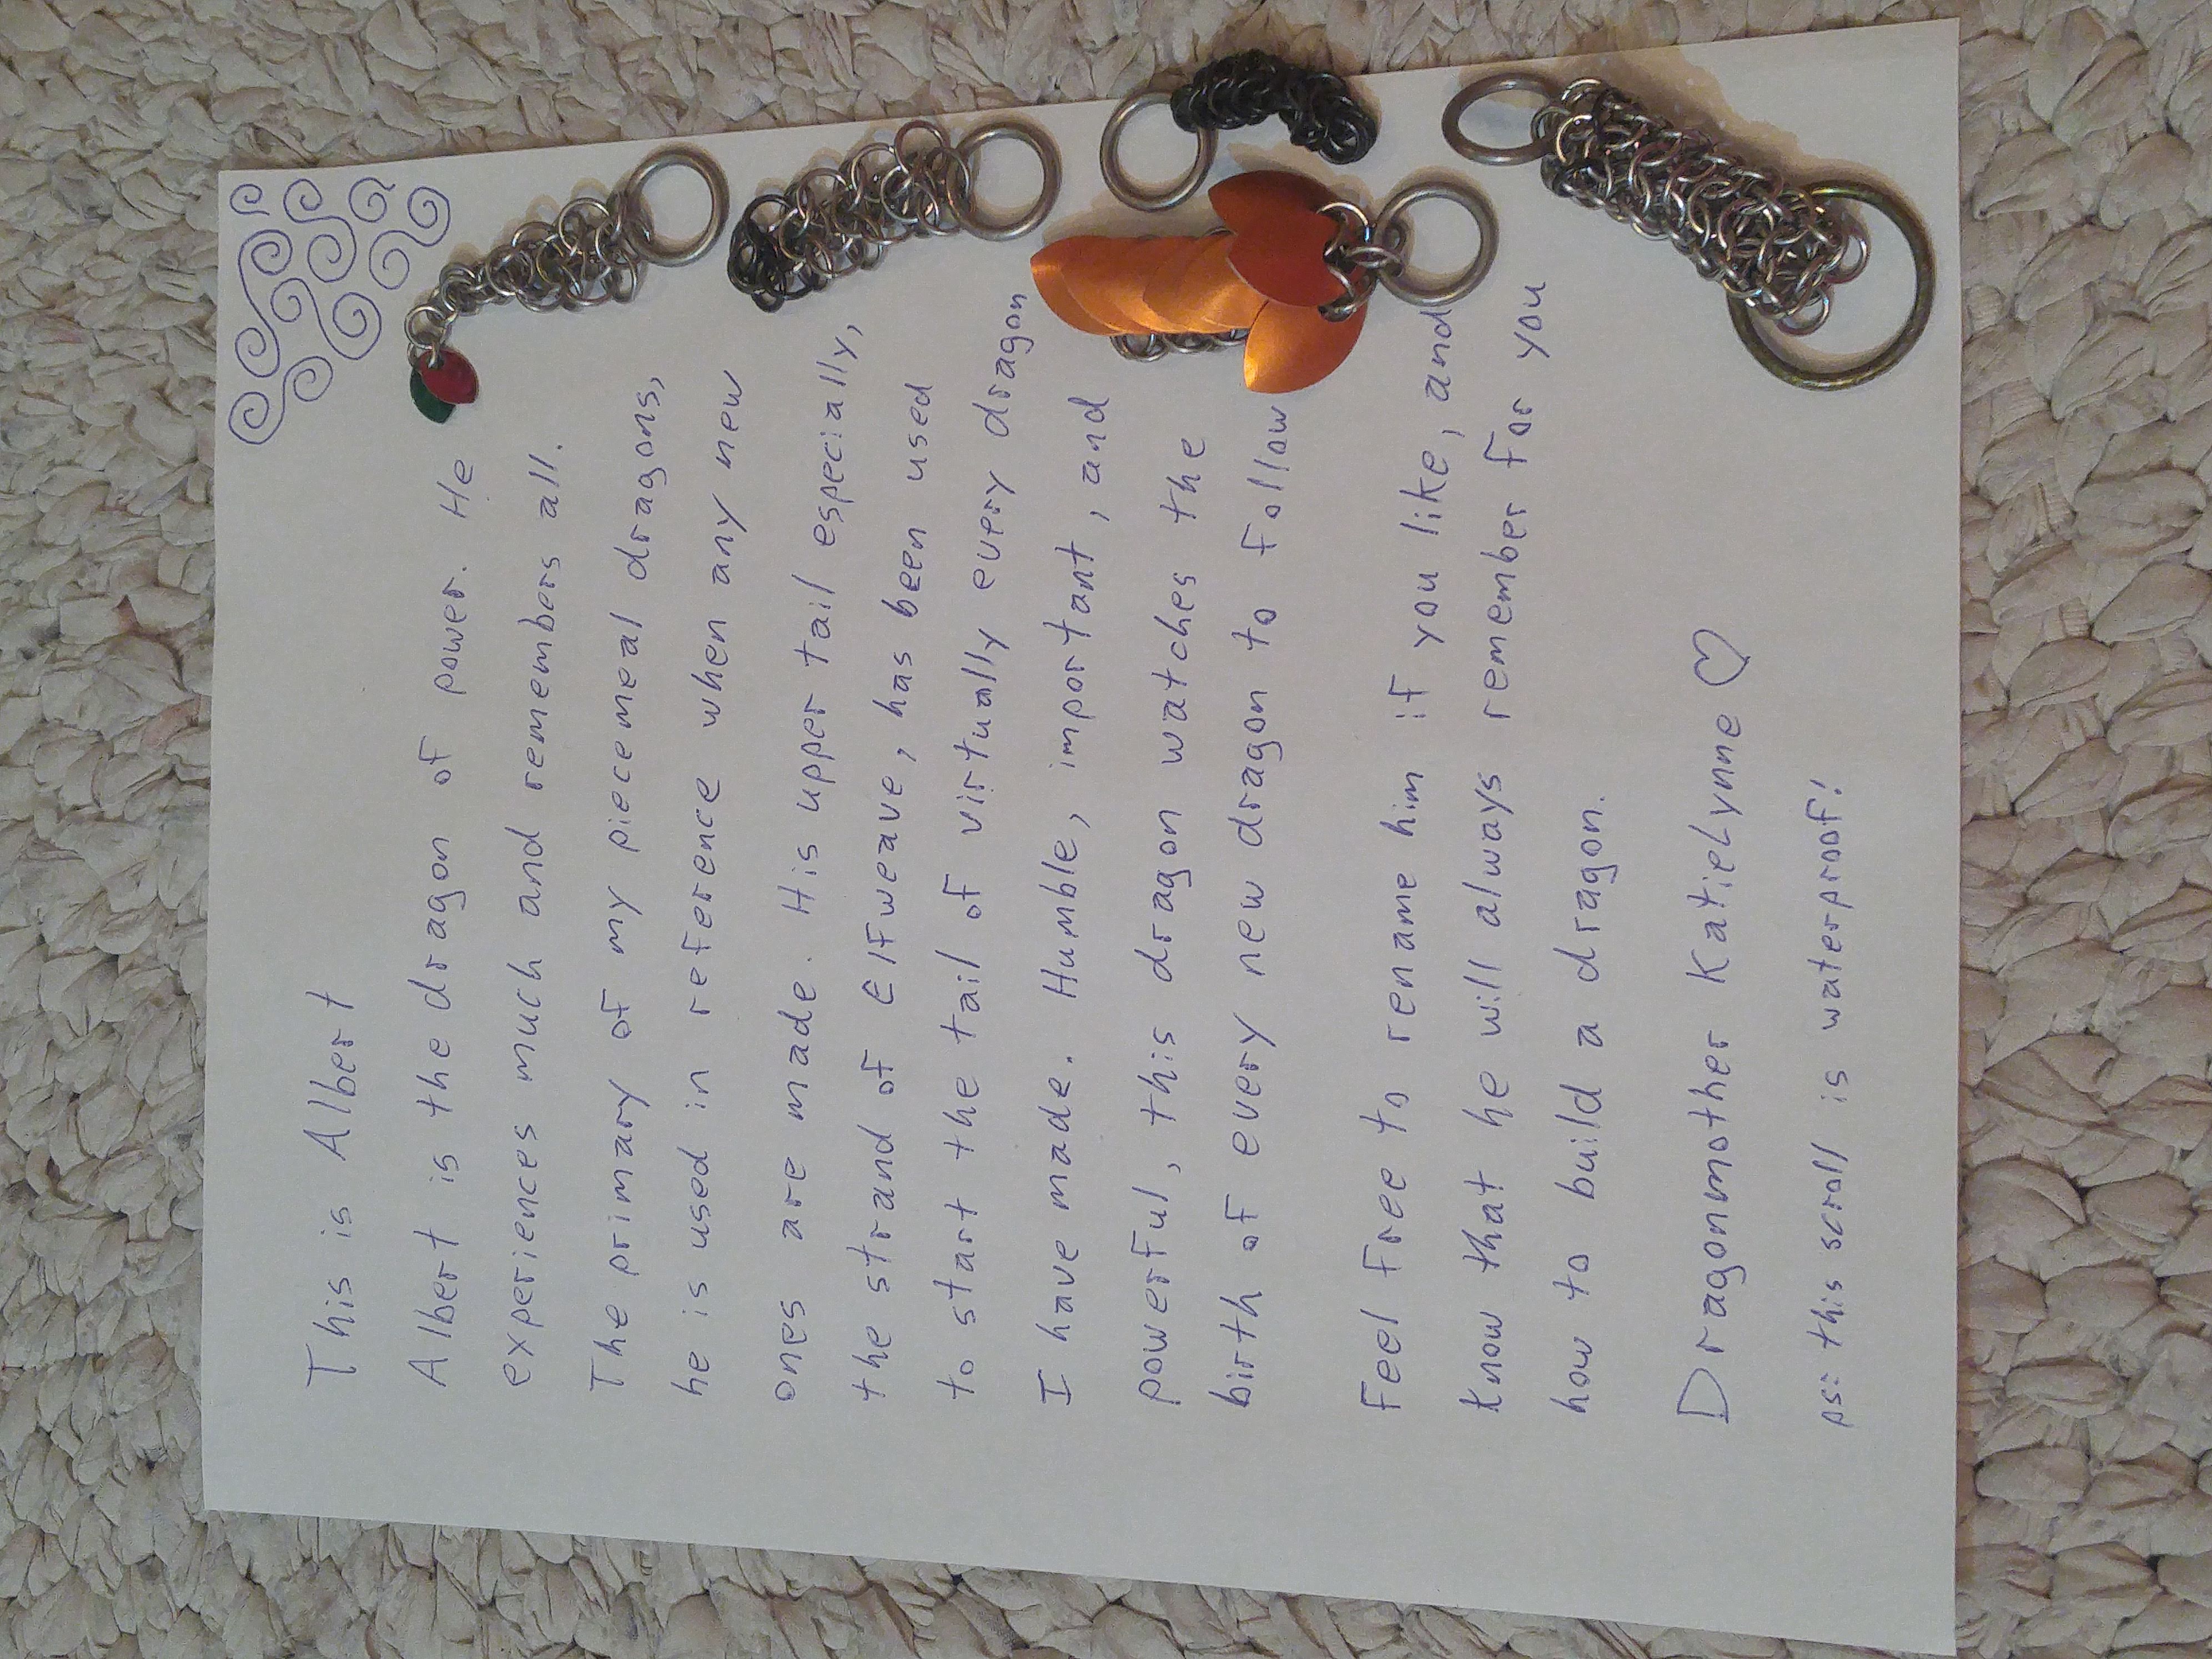 This is Albert
Albert is the dragon of power. He
experiences much and remembers all.
The primary of my piecemeal dragons,
he is used in reference when any new
ones are made. His upper tail especially,
the strand of Elfweave, has been used
to start the tail of virtually every dragon
I have made. Humble, important, and
powerful, this dragon watches the
birth of every new dragon to follow
Feel free to rename him if you like, and
know that he will always remember for you
how to build a dragon.
Dragonmother KatieLynne ♡
ps: this scroll is waterproof!